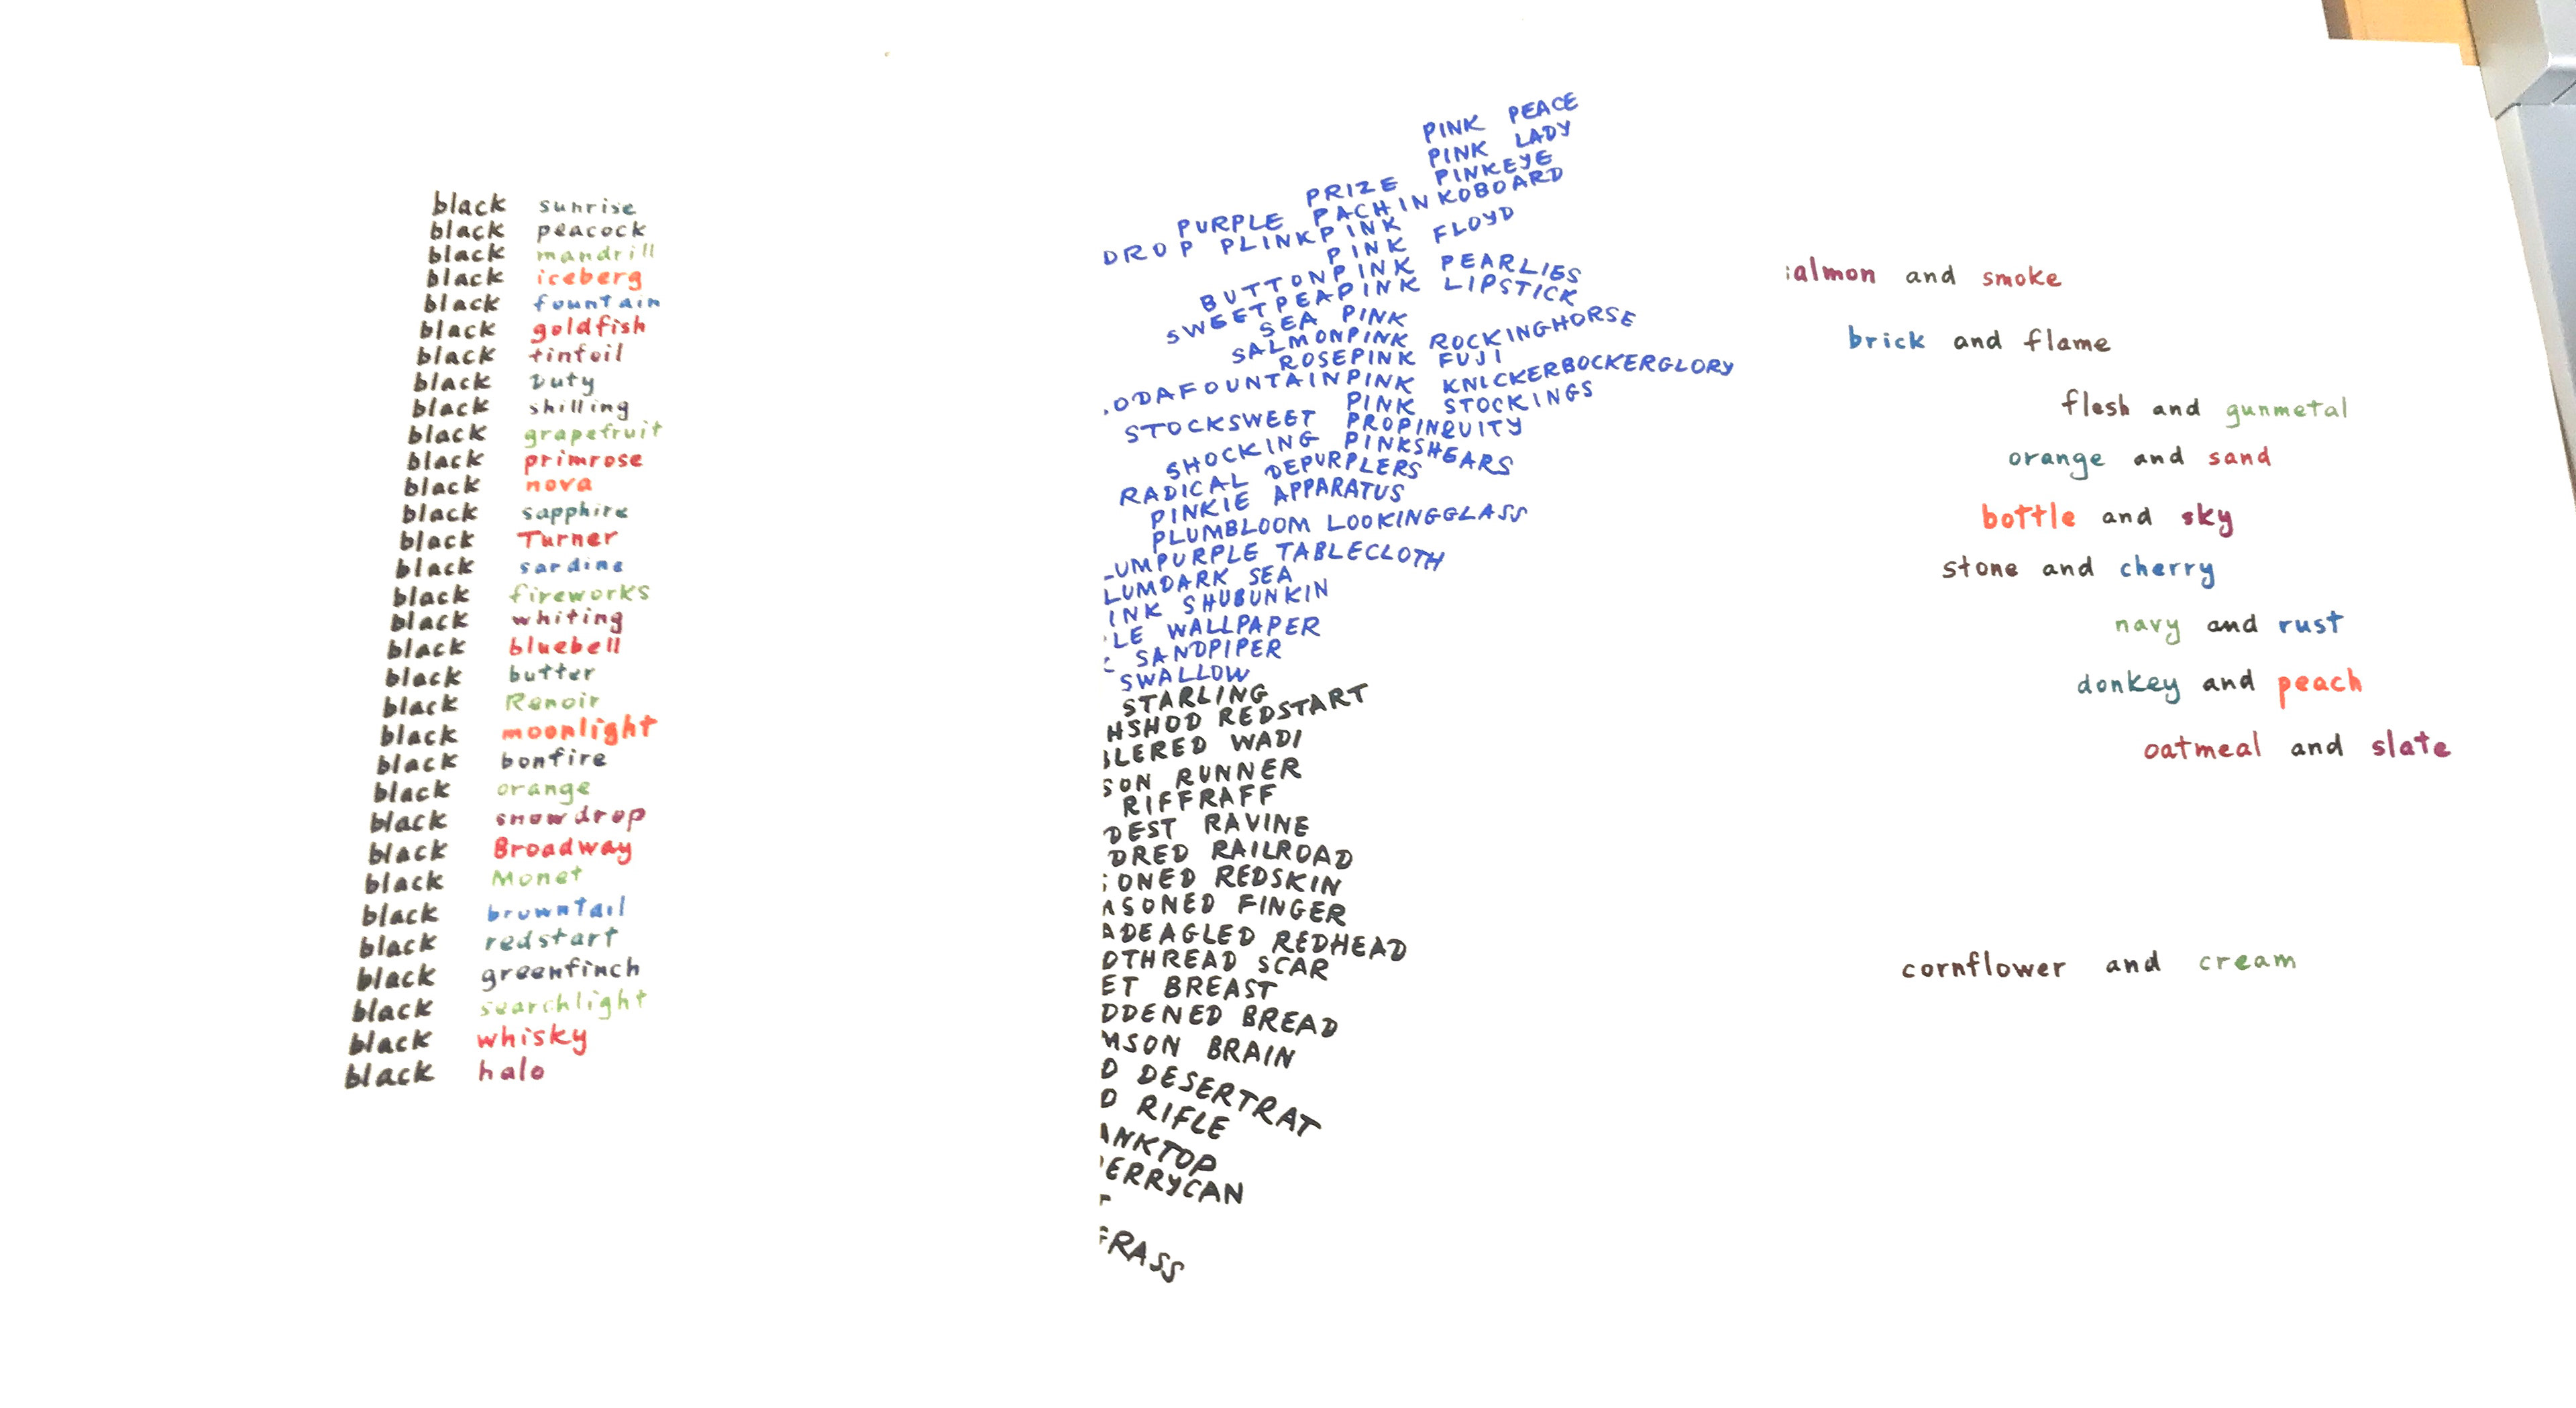 black sunrise
black peacock
black mandrill
black iceberg
black fountain
black goldfish
black tinfoil
black Duty
black shilling
black grapefruit
black primrose
black nova
black sapphire
black Turner
black sardine
black fireworks
black whiting
black bluebell
black butter
black Renoir
black moonlight
black bonfire
black orange
black snowdrop
black Broadway
black Monet
black browntail
black redstart
black greenfinch
black searchlight
black whisky
black halo
PINK PEACE
PINK LADY
PRIZE PINKEYE
PURPLE PACHINKOBOARD
DROP PLINKPINK
PINK FLOYD
BUTTONPINK PEARLIES
SWEETPEAPINK LIPSTICK
SEA PINK
SALMONPINK ROCKINGHORSE
ROSEPINK FUJI
ODAFOUNTAINPINK KNICKERBOCKERGLORY
PINK STOCKINGS
STOCKSWEET PROPINQUITY
SHOCKING PINKSHEARS
RADICAL DEPURPLERS
PINKIE APPARATUS
PLUMBLOOM LOOKINGGLASS
UMPURPLE TABLECLOTH
LUMDARK SEA
INK SHUBUNKIN
LE WALLPAPER
SANDPIPER
SWALLOW
STARLING
HSHOD REDSTART
LERED WADI
SON RUNNER
RIFFRAFF
DEST RAVINE
DRED RAILROAD
ONED REDSKIN
ASONED FINGER
ADEAGLED REDHEAD
DTHREAD SCAR
ET BREAST
DDENED BREAD
MSON BRAIN
D DESERTRAT
D RIFLE
ANKTOP
ERRYCAN
RASS
almon and smoke
brick and flame
flesh and gunmetal
orange and sand
bottle and sky
stone and cherry
navy and rust
donkey and peach
oatmeal and slate
cornflower and cream